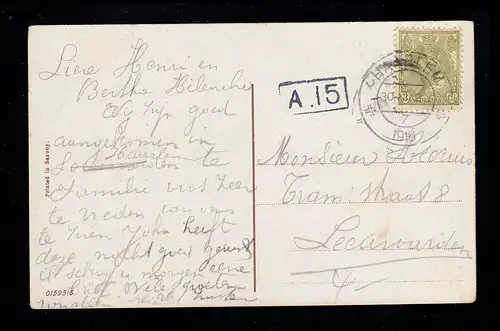 Lieve Henri en
Bertha Helenche
Wij zijn goed
aangekomen in
Haarlem
te
familie was zeer
te vreden van ons
te zien John heeft
deze nacht goed
ik schrijf u morgen eene
brief Vele groeten
Printed in Saxony.
015951
A.15
HAARLEM
191
Monsieur
Tram straat 8
Leeuwarden